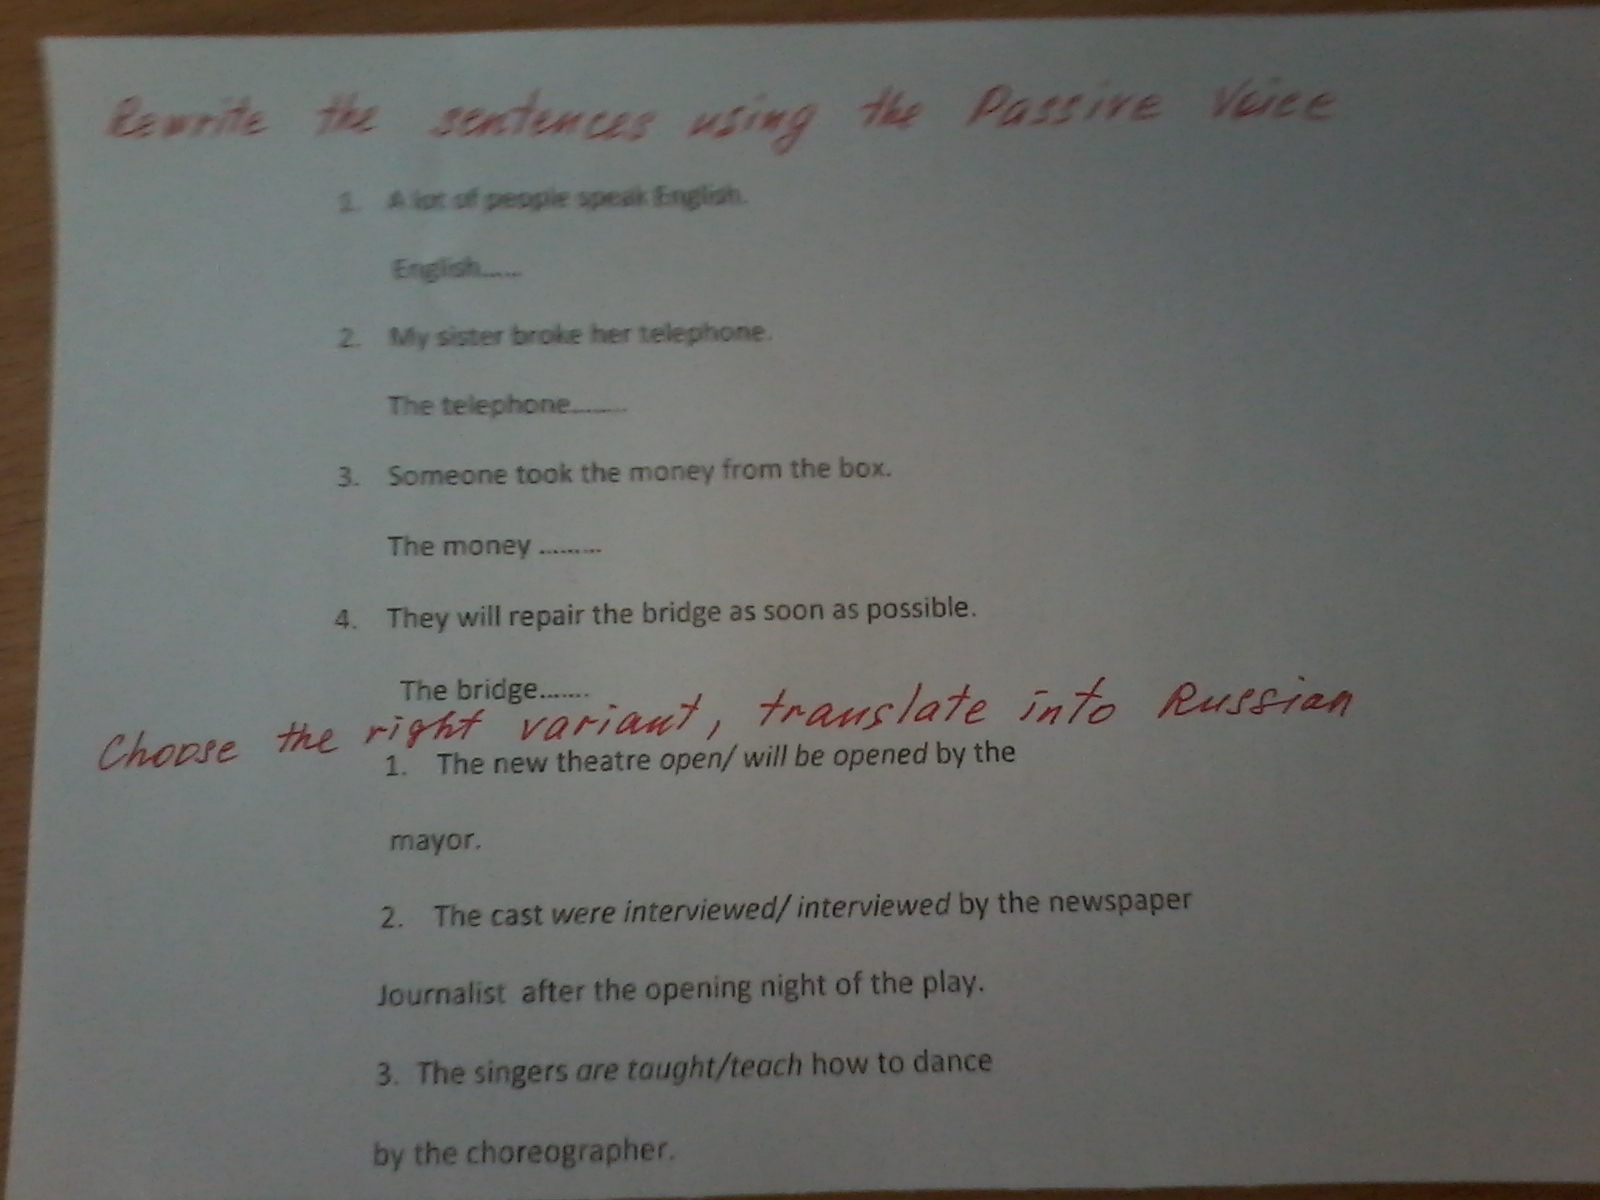 Rewrite the sentences using the Passive Voice
1. A lot of people speak English.
English......
2. My sister broke her telephone.
The telephone.........
3. Someone took the money from the box.
The money .........
4. They will repair the bridge as soon as possible.
The bridge.......
Choose the right variant, translate into Russian
1. The new theatre open/ will be opened by the
mayor.
2. The cast were interviewed/ interviewed by the newspaper
Journalist after the opening night of the play.
3. The singers are taught/teach how to dance
by the choreographer.